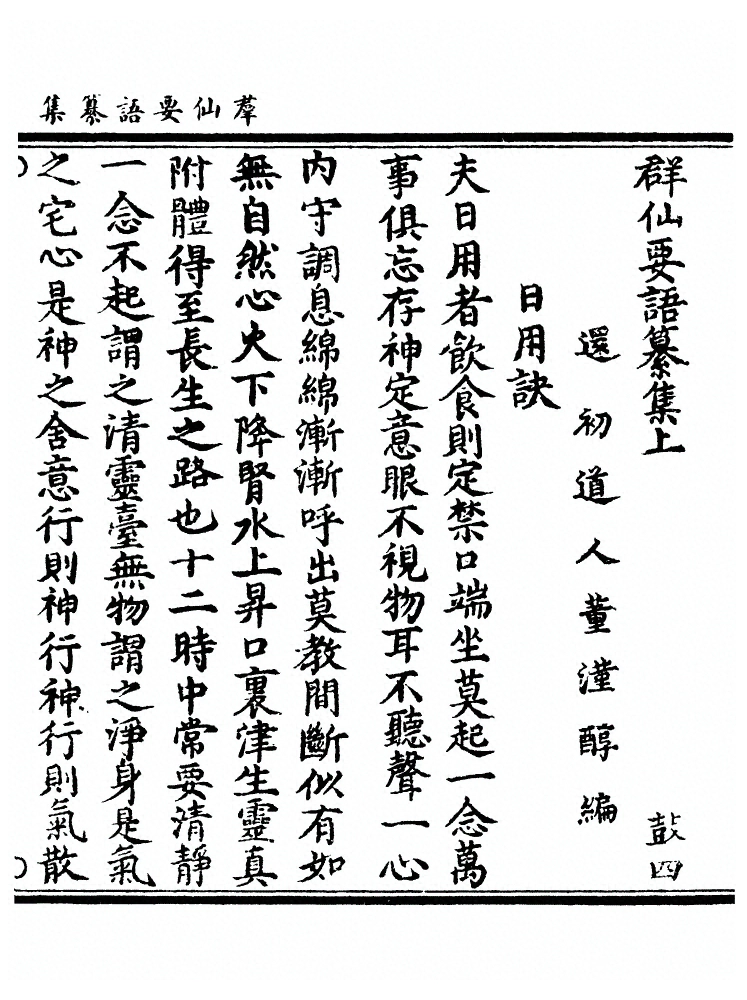 羣仙要語纂集
群仙要語纂集上
鼔四
還初道人董漌醇編
日用訣
夫日用者飲食則定禁口端坐莫起一念萬
事俱忘存神定意眼不視物耳不聽聲一心
内守調息綿綿漸漸呼出莫教間斷似有如
無自然心火下降腎水上昇口裏津生靈真
附體得至長生之路也十二時中常要清靜
一念不起謂之清靈臺無物謂之淨身是氣
之宅心是神之舍意行則神行神行則氣散